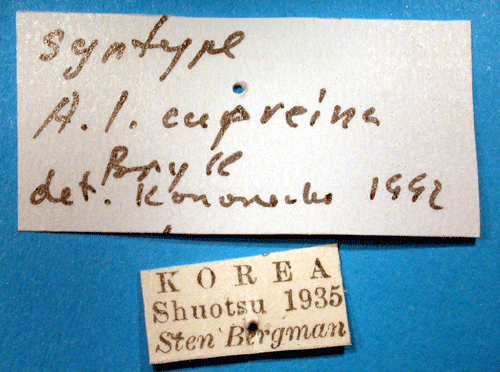 syntype
A. l. cupreina
Bryk
det. Kononenko 1992
KOREA
Shuotsu 1935
Sten Bergman